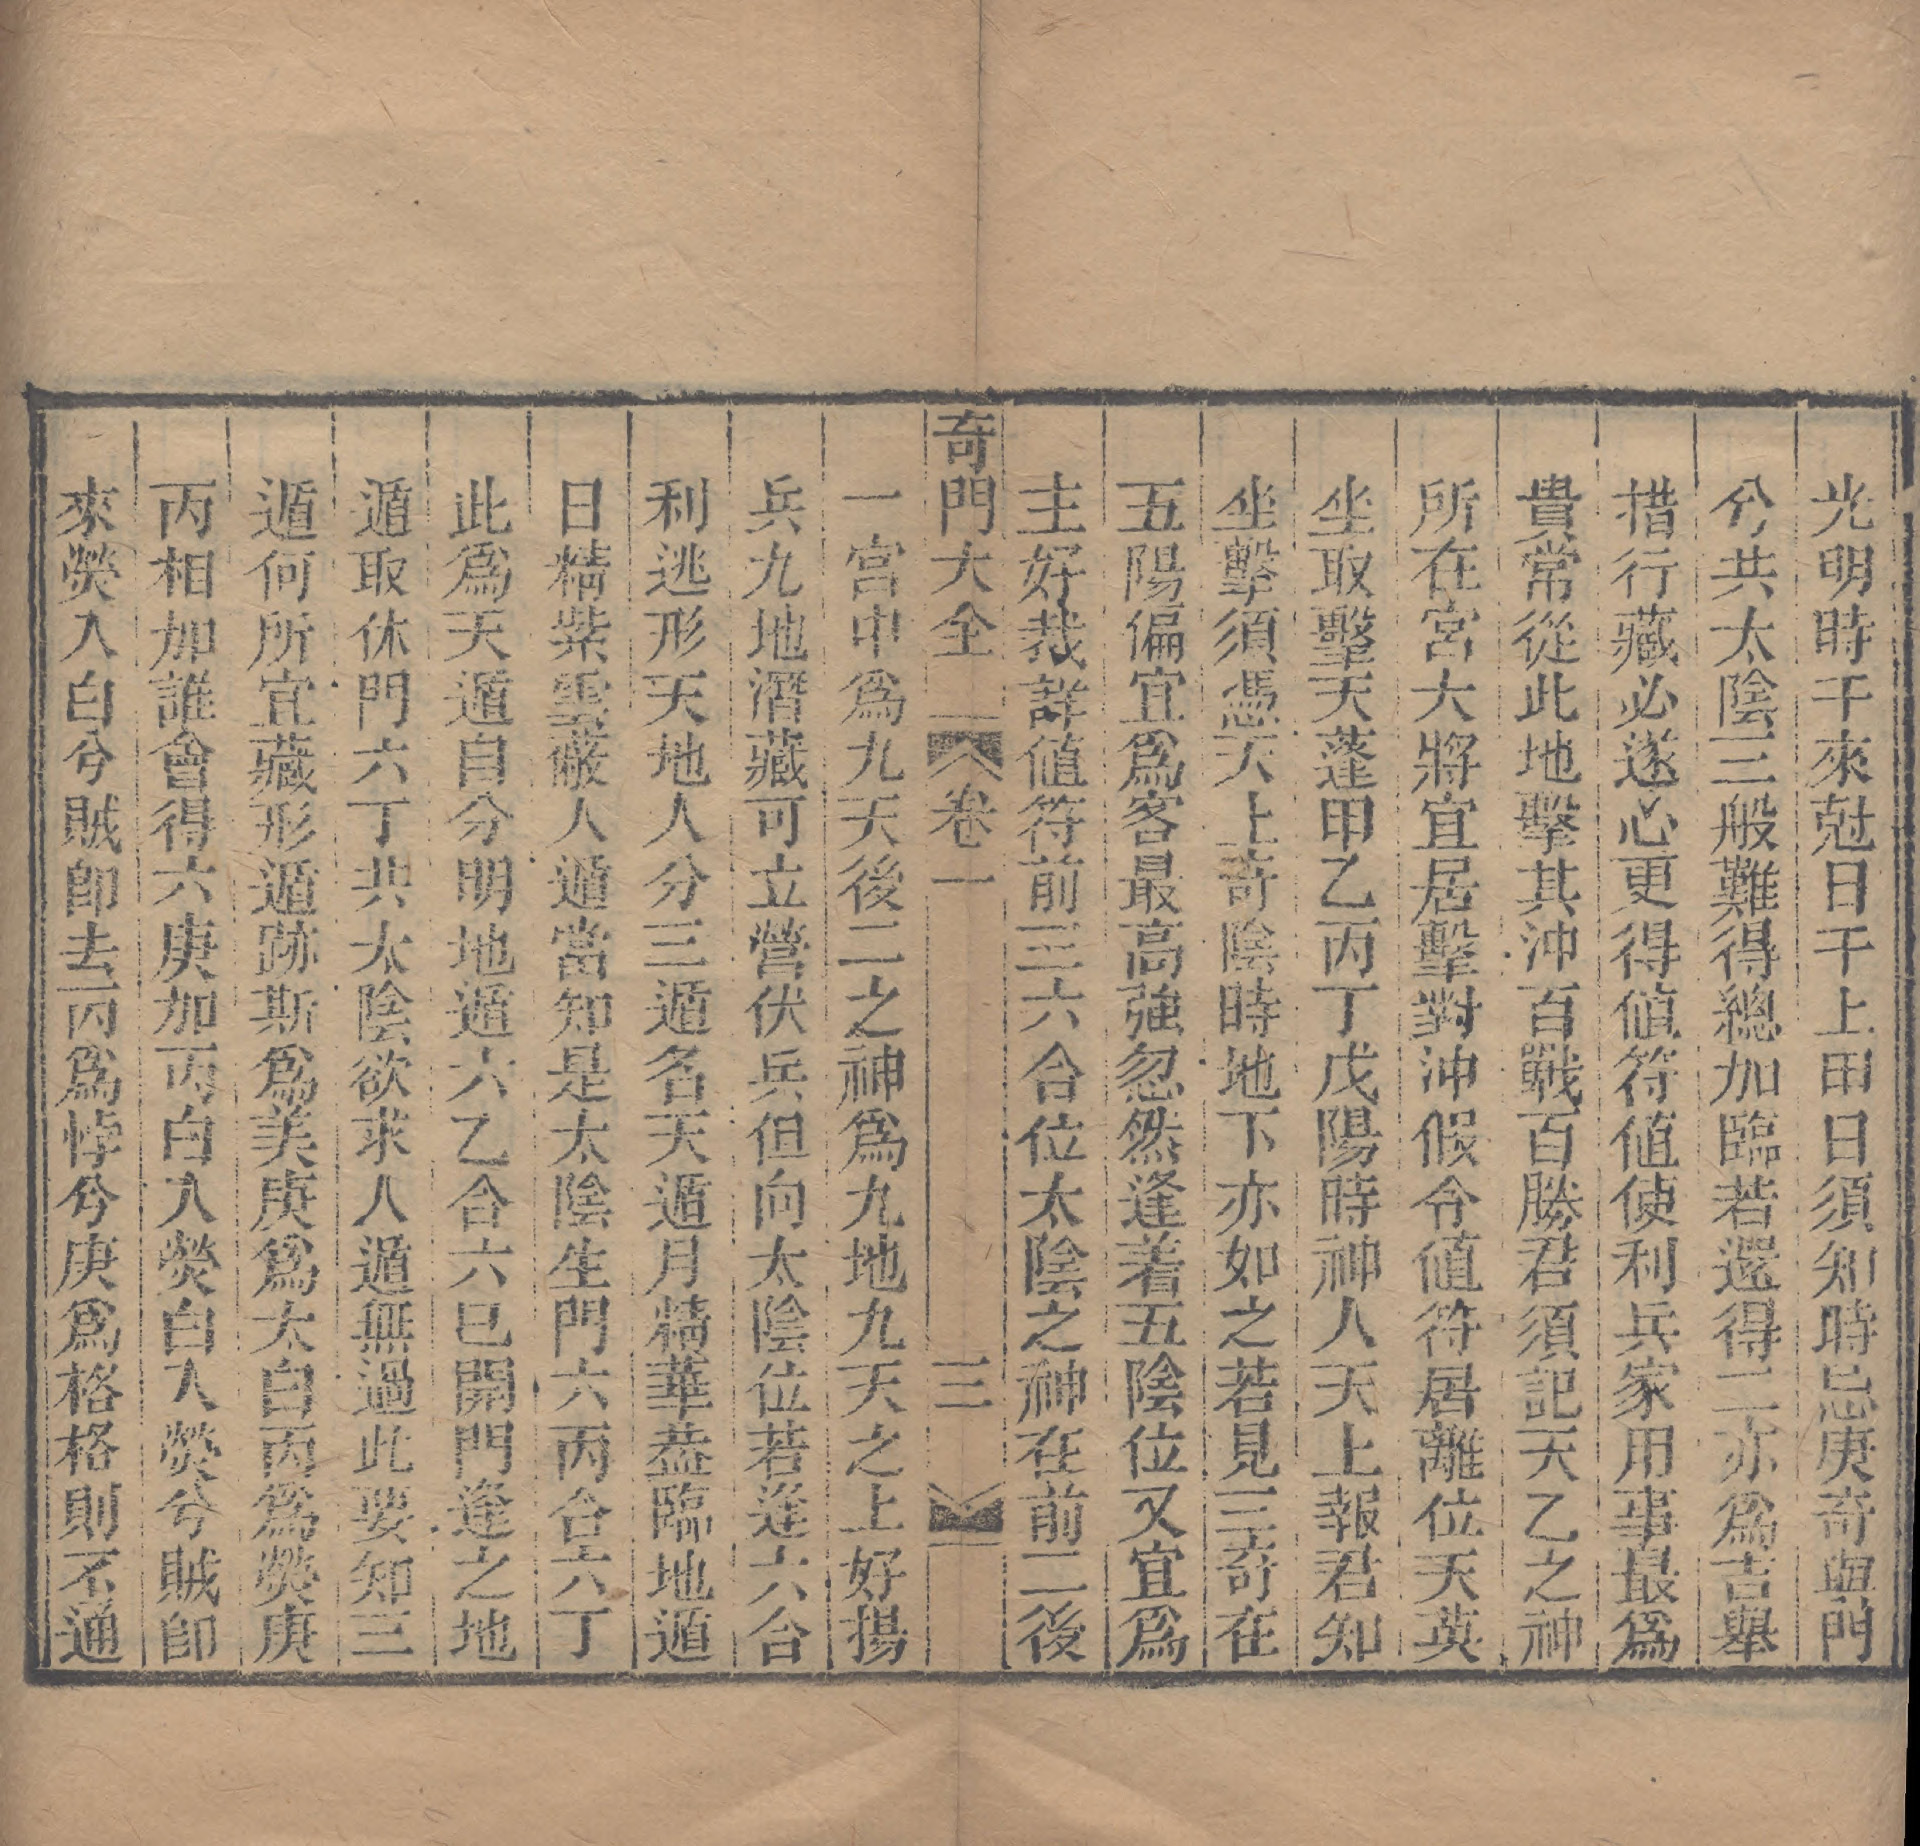 光明時干來尅日干上甲日須知時忌庚奇與門
兮共太陰三般難得總加臨若還得二亦爲吉舉
措行藏必遂心更得値符値使利兵家用事最爲
貴常從此地擊其沖百戰百勝君須記天乙之神
所在宮大將宜居擊對沖假令値符居離位天英
坐取擊天蓬甲乙丙丁戊陽時神人天上報君知
坐擊須憑天上奇陰時地下亦如之若見三奇在
五陽偏宜爲客最高強忽然逢着五陰位又宜爲
主好裁詳値符前三六合位太陰之神在前二後
奇門大全 卷一 三
一宮中爲九天後二之神爲九地九天之上好揚
兵九地潛藏可立營伏兵但向太陰位若逢六合
利逃形天地人分三遁名天遁月精華葢臨地遁
日精紫雲蔽人遁當知是太陰生門六丙合六丁
此爲天遁自分明地遁六乙合六已開門逢之地
遁取休門六丁共太陰欲求人遁無過此要知三
遁何所宜藏形遁跡斯爲美庚爲太白丙爲熒庚
丙相加誰會得六庚加丙白入熒白入熒兮賊卽
來熒入白兮賊卽去丙爲悖兮庚爲格格則不通